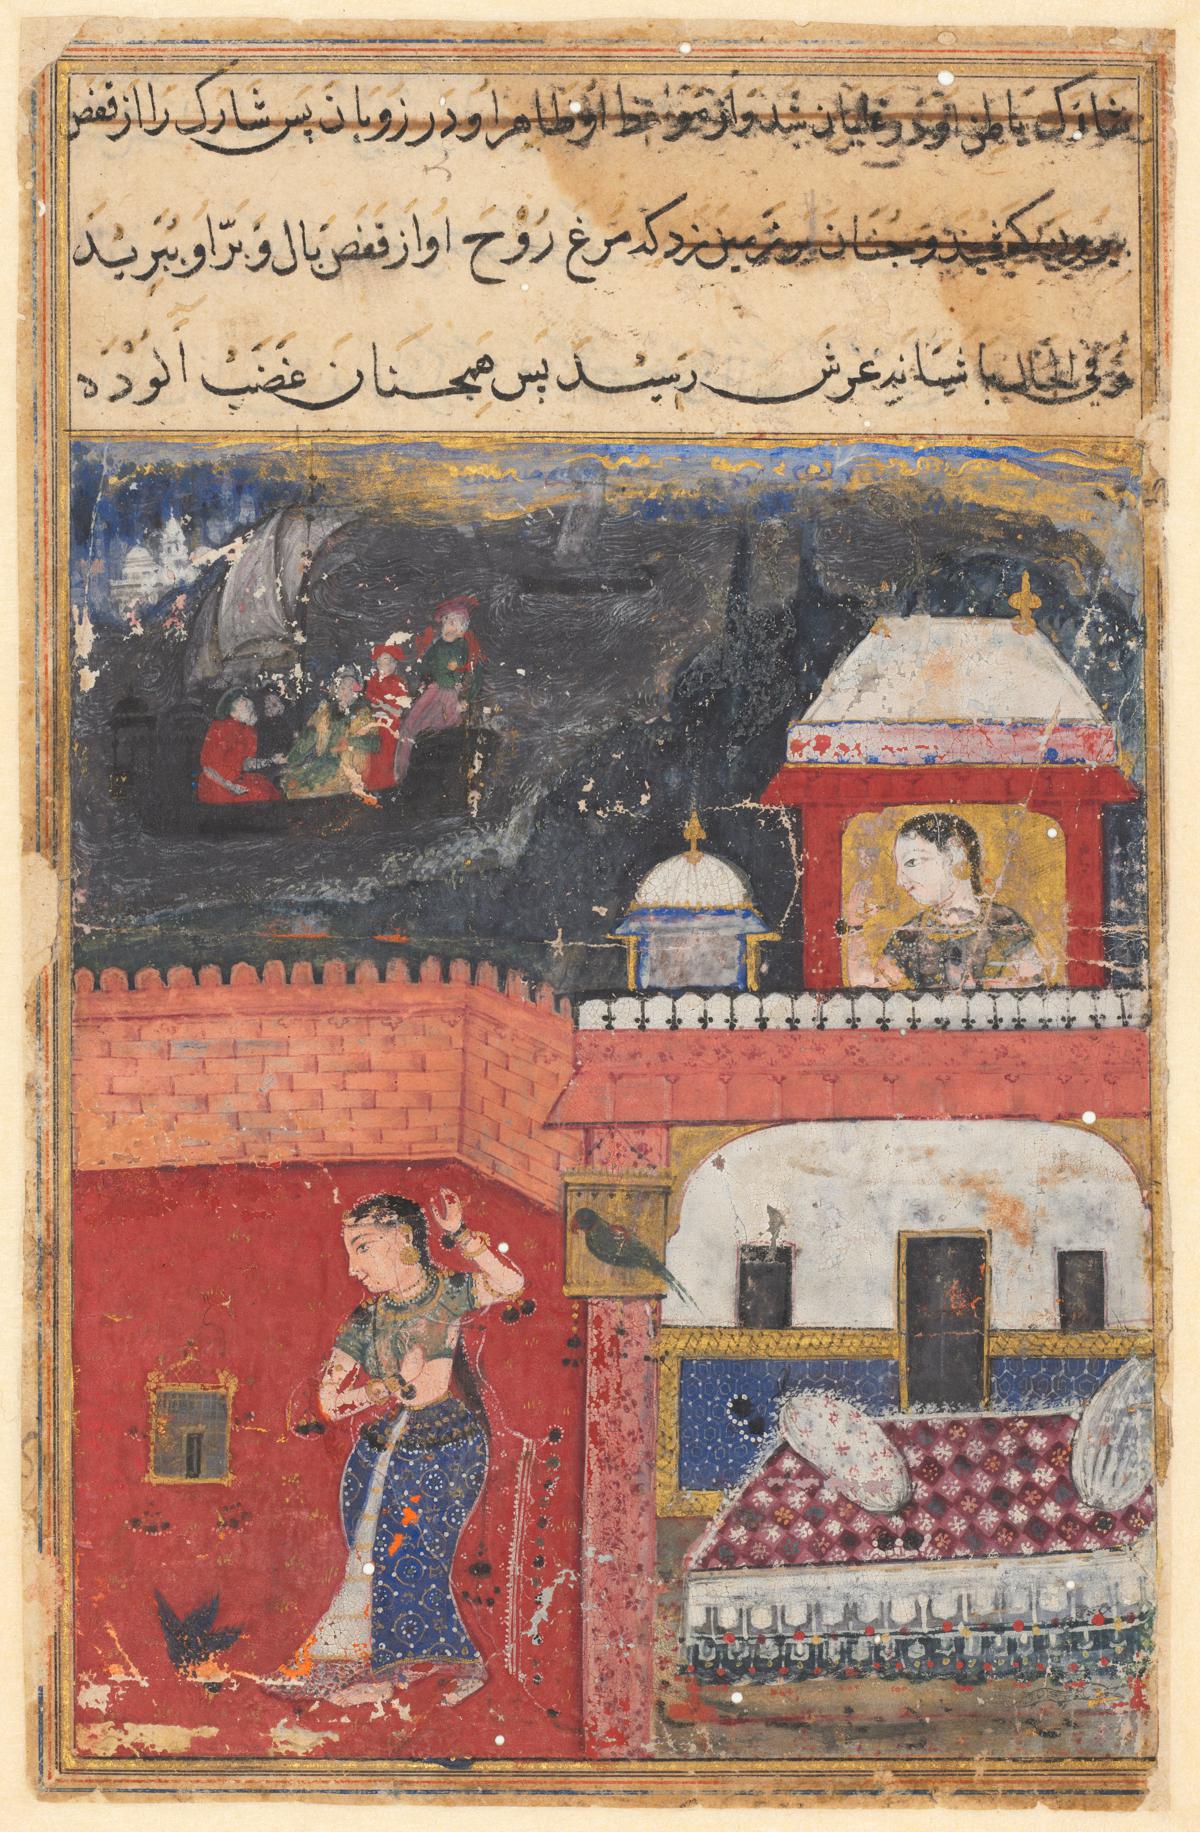 شارک باطن او در غلیان شد و از مواعظ او ظاهر او در زوبان پس شارک را از قفص
بیرون کشید و چنان بر زمین زد که مرغ روح او از قفص بال و بر او ببرید
و فی الحال باشیانه عرش رسید پس همچنان غضب آلوده